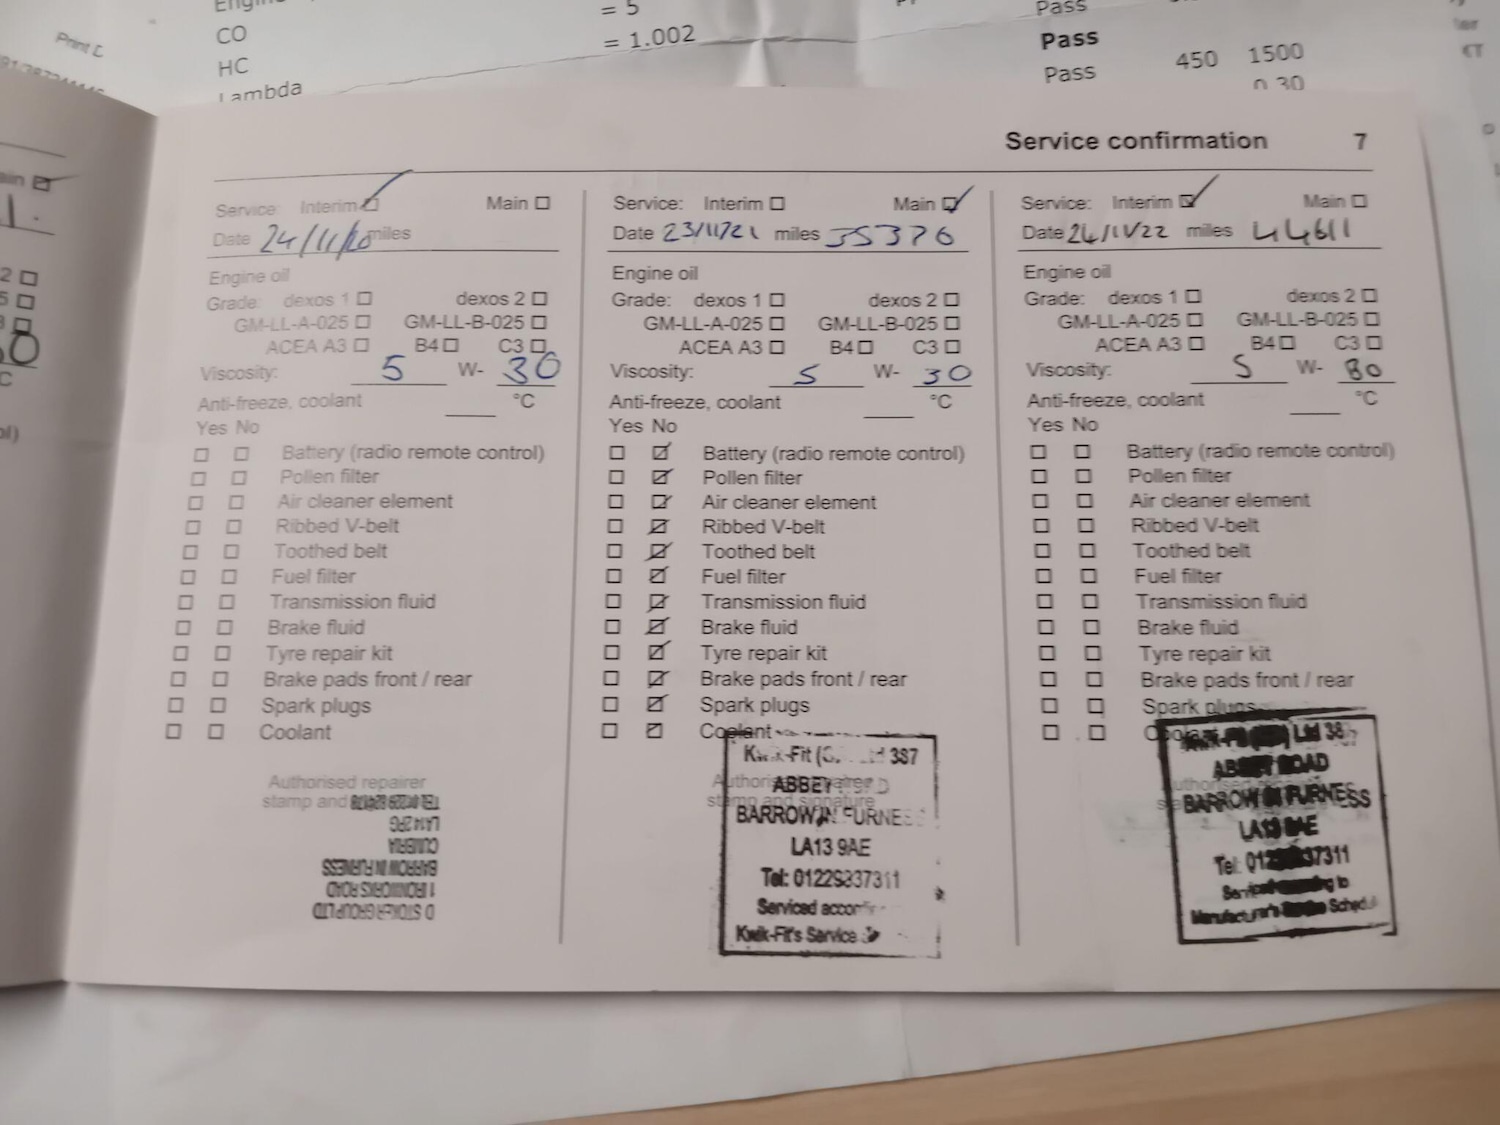 Print D
CO
HC
Lambda
= 5
= 1.002
Pass
Pass
Pass
450 1500
0.30
Service confirmation 7
Service: Interim Main
Date 24/11/20 miles
Engine oil
Grade: dexos 1 dexos 2
GM-LL-A-025 GM-LL-B-025
ACEA A3 B4 C3
Viscosity: 5 W- 30
Anti-freeze, coolant °C
Yes No
Battery (radio remote control)
Pollen filter
Air cleaner element
Ribbed V-belt
Toothed belt
Fuel filter
Transmission fluid
Brake fluid
Tyre repair kit
Brake pads front / rear
Spark plugs
Coolant
Authorised repairer
stamp and
D STOKER GROUP LTD
1 IRONWORKS ROAD
BARROW IN FURNESS
CUMBRIA
LA14 2PG
Service: Interim Main
Date 23/11/21 miles 35376
Engine oil
Grade: dexos 1 dexos 2
GM-LL-A-025 GM-LL-B-025
ACEA A3 B4 C3
Viscosity: 5 W- 30
Anti-freeze, coolant °C
Yes No
Battery (radio remote control)
Pollen filter
Air cleaner element
Ribbed V-belt
Toothed belt
Fuel filter
Transmission fluid
Brake fluid
Tyre repair kit
Brake pads front / rear
Spark plugs
Coolant
Authorised repairer
stamp and signature
387
ABBEY
BARROW IN FURNESS
LA13 9AE
Tel: 01229837311
Serviced
Kwik-Fit's Service
Service: Interim Main
Date 24/11/22 miles 44611
Engine oil
Grade: dexos 1 dexos 2
GM-LL-A-025 GM-LL-B-025
ACEA A3 B4 C3
Viscosity: 5 W- 30
Anti-freeze, coolant °C
Yes No
Battery (radio remote control)
Pollen filter
Air cleaner element
Ribbed V-belt
Toothed belt
Fuel filter
Transmission fluid
Brake fluid
Tyre repair kit
Brake pads front / rear
Spark plugs
Ltd
ABBEY ROAD
BARROW IN FURNESS
LA13 9AE
Tel:
to
Manufacturer's